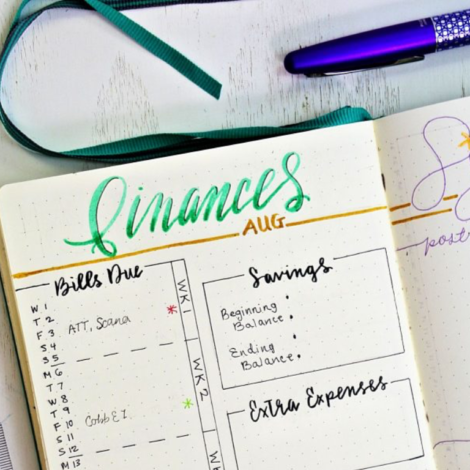 Finances
AUG
Bills Due
W 1
T 2
F 3
ATT, Scana
S 4
S 5
M 6
T 7
W 8
T 9
F 10
Cobb EI
S 11
S 12
M 13
WK 1
WK 2
Savings
Beginning
Balance:
Ending
Balance:
Extra Expenses